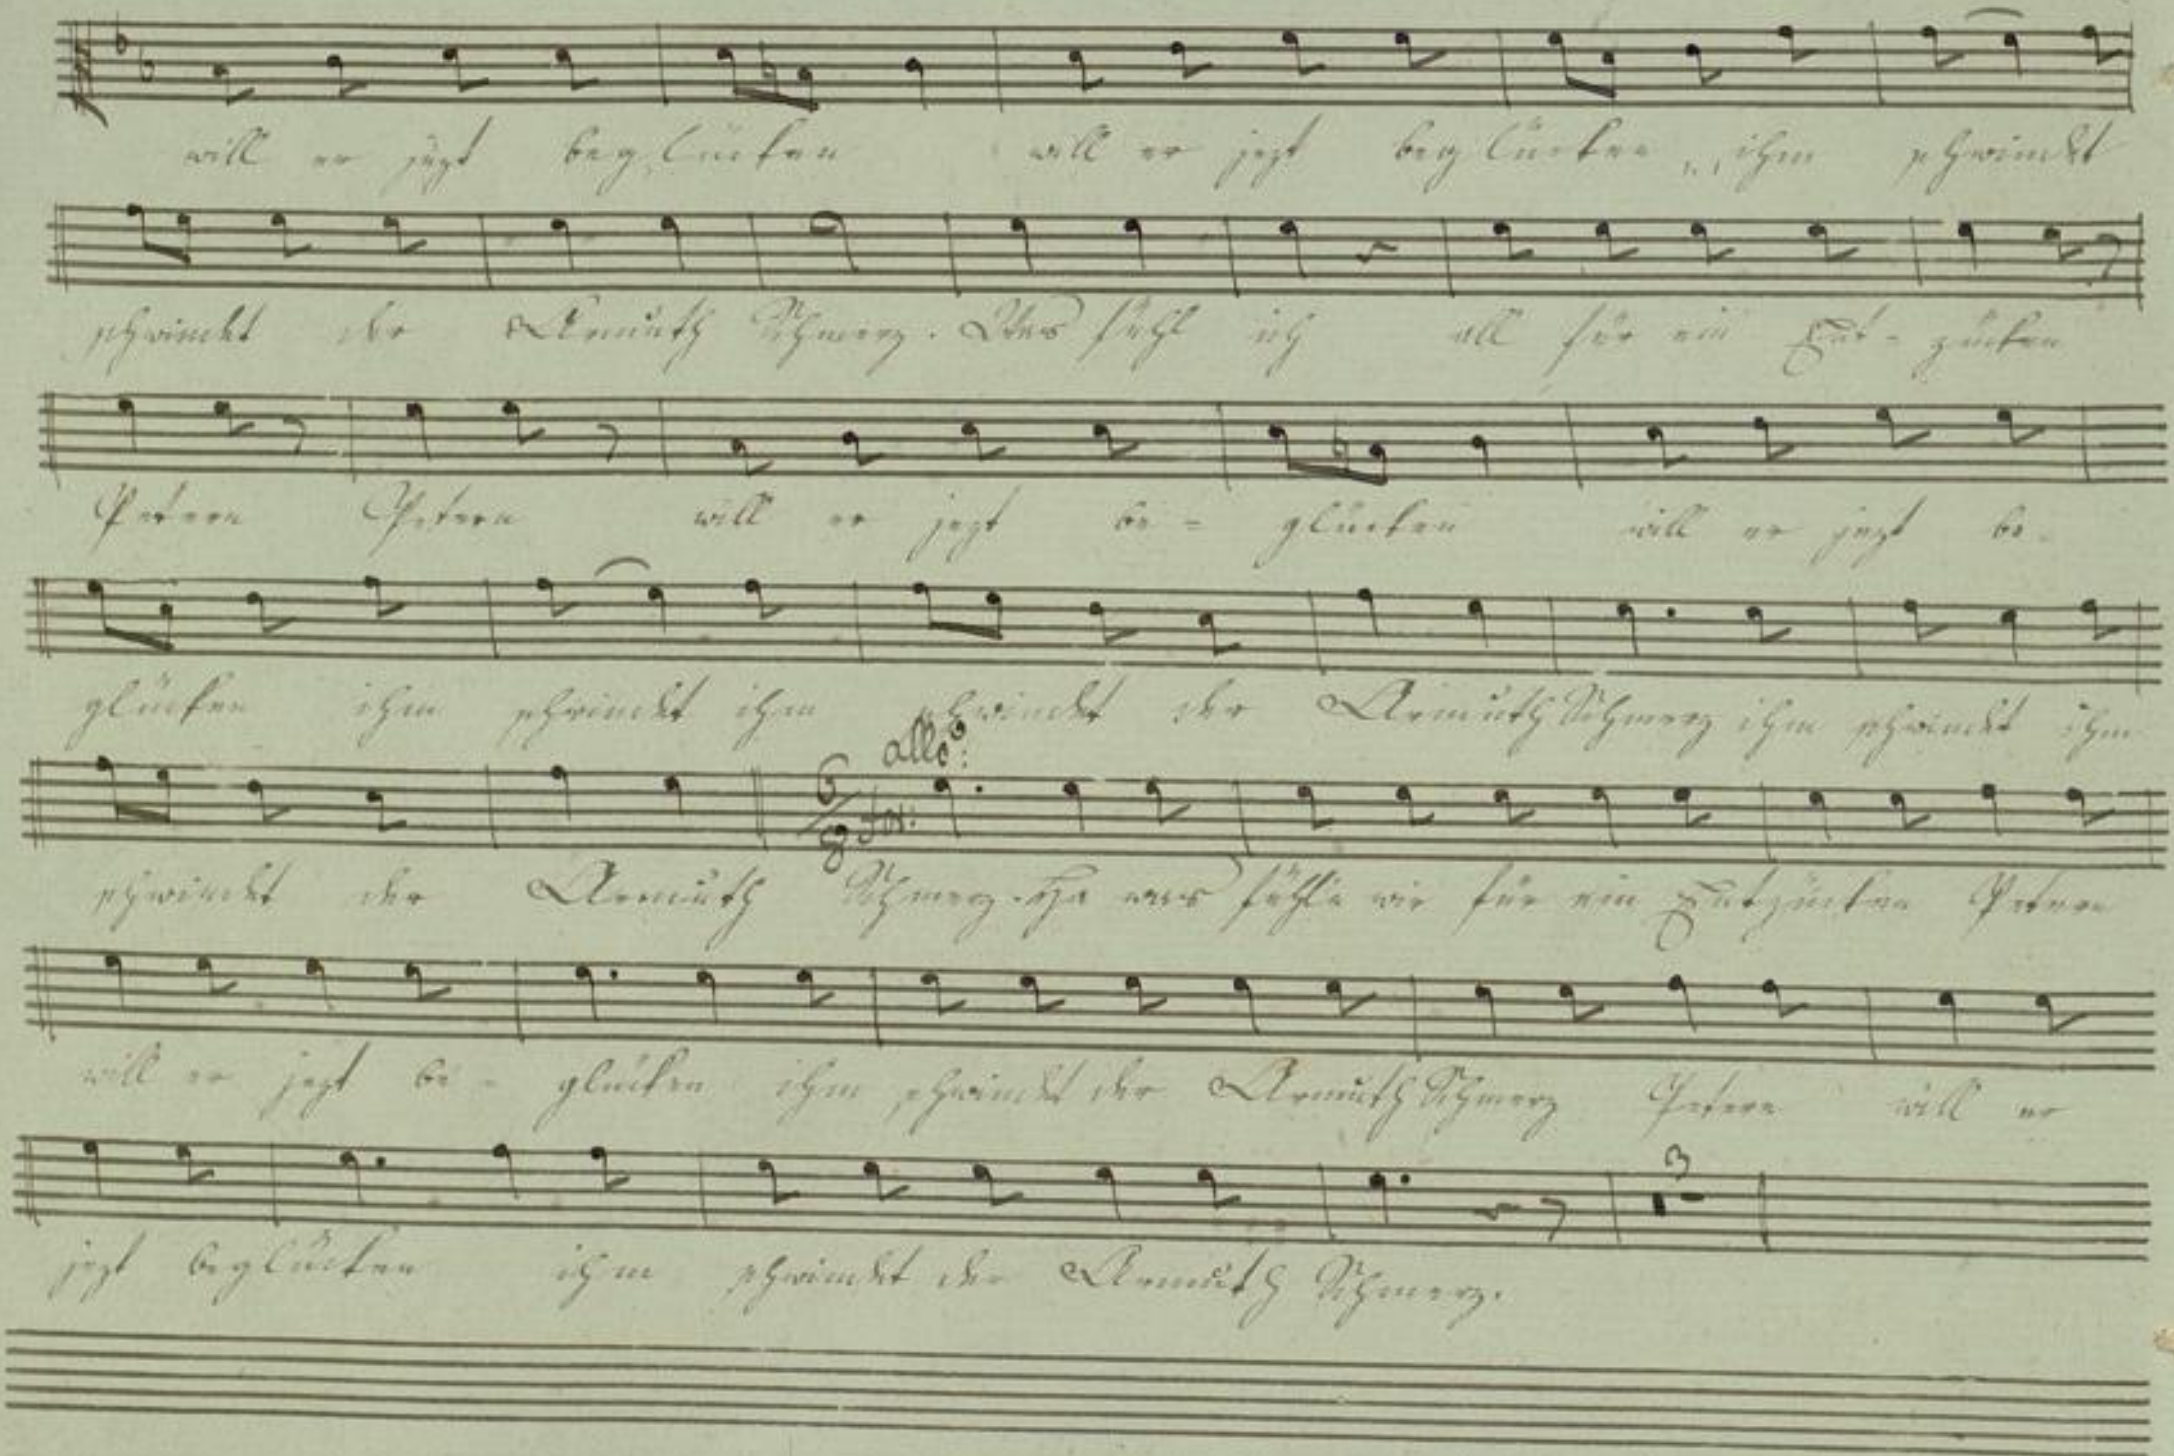 will er jezt beglücken will er jezt beglücken ihm schwindet
schwindet der Armuth Schmerz. Was fühl ich all für ein Ent- zücken
Petern Petern will er jezt be- glücken will er jezt be-
glücken ihm schwindet ihm schwindet der Armuth Schmerz ihm schwindet ihm
allo:
6/8 for:
schwindet der Armuth Schmerz. Ha was fühln wir für ein Entzücken Petern
will er jezt be- glücken ihm schwindet der Armuth Schmerz Petern will er
3
jezt beglücken ihm schwindet der Armuth Schmerz.